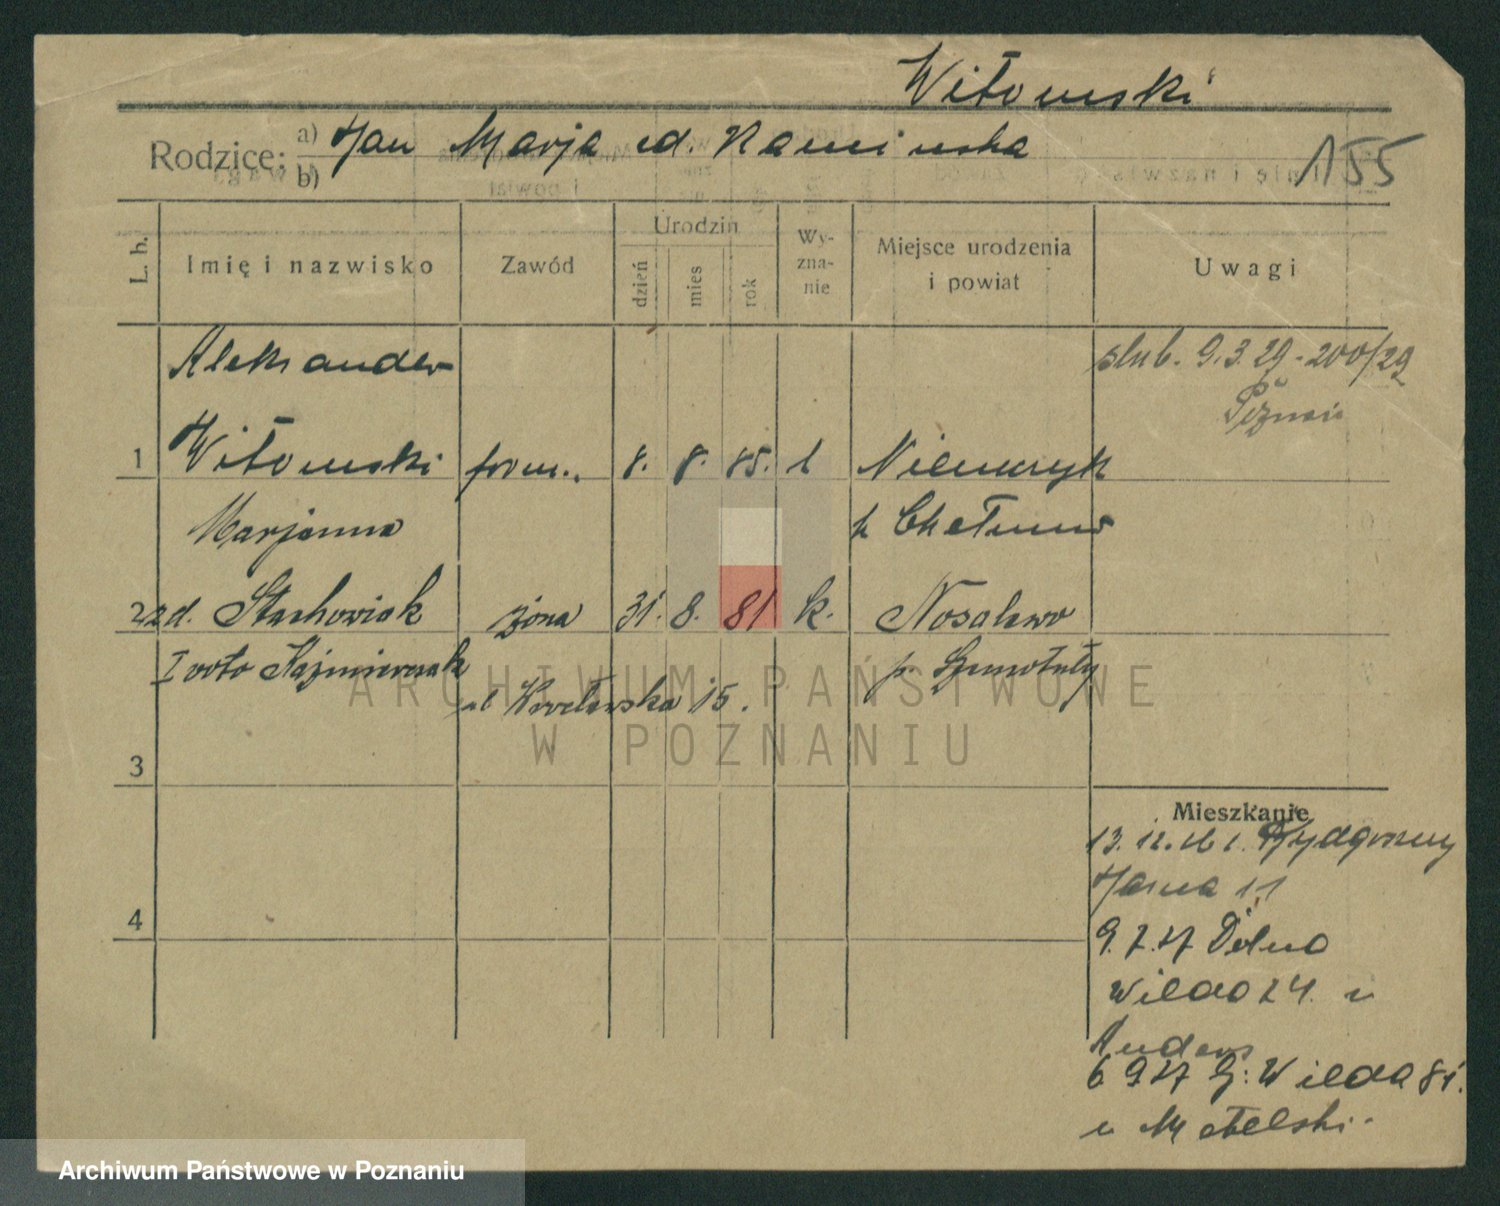 Witowski
Rodzice: a) Jan Marja zd. Kamińska
b)
155
L. b.
Imię i nazwisko
Zawód
Urodzin
dzień
mies
rok
Wy-
zna-
nie
Miejsce urodzenia
i powiat
Uwagi
Aleksander
ślub. 9.3.29 - 200/29
Poznań
1 Witowski form. 8. 8. 85.
Marjanna
2 zd. Stachowiak żona 31. 8. 81 k. Nosalewo
I voto Kaźmierczak p. Szamotuły
15.
3
Mieszkanie
13. 12. 26 z Bydgoszczy
Jasna 11
4
9. 7. 27 Dolna
Wilda 24. u
Anders
6 9 27 G: Wilda 81.
u Matelski.
ARCHIWUM PAŃSTWOWE
W POZNANIU
Archiwum Państwowe w Poznaniu